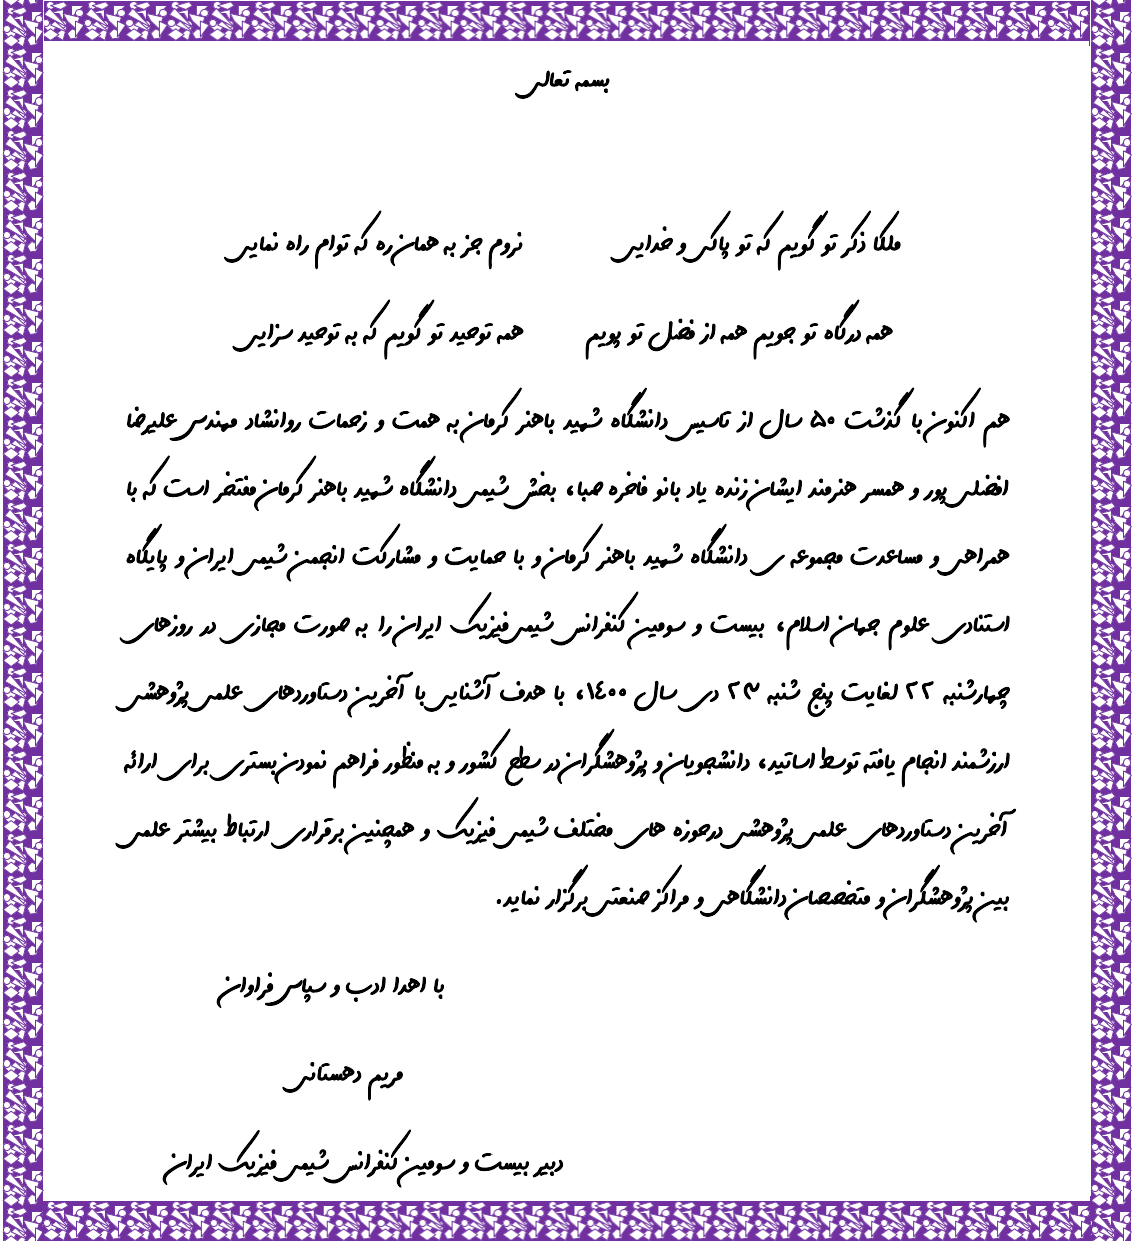 بسمه تعالی
ملکا ذکر تو گویم که تو پاکی و خدایی نروم جز به همان ره که توام راه نمایی
همه درگاه تو جویم همه از فضل تو پویم همه توحید تو گویم که به توحید سزایی
هم اکنون با گذشت ۵۰ سال از تاسیس دانشگاه شهید باهنر کرمان به همت و زحمات روانشاد مهندس علیرضا
افضلی پور و همسر هنرمند ایشان زنده یاد بانو فاخره صبا، بخش شیمی دانشگاه شهید باهنر کرمان مفتخر است که با
همراهی و مساعدت مجموعه ی دانشگاه شهید باهنر کرمان و با حمایت و مشارکت انجمن شیمی ایران و پایگاه
استنادی علوم جهان اسلام، بیست و سومین کنفرانس شیمی فیزیک ایران را به صورت مجازی در روزهای
چهارشنبه ۲۲ لغایت پنج شنبه ۲۳ دی سال ۱۴۰۰، با هدف آشنایی با آخرین دستاوردهای علمی پژوهشی
ارزشمند انجام یافته توسط اساتید، دانشجویان و پژوهشگران در سطح کشور و به منظور فراهم نمودن بستری برای ارائه
آخرین دستاوردهای علمی پژوهشی درحوزه های مختلف شیمی فیزیک و همچنین برقراری ارتباط بیشتر علمی
بین پژوهشگران و متخصصان دانشگاهی و مراکز صنعتی برگزار نماید.
با اهدا ادب و سپاس فراوان
مریم دهستانی
دبیر بیست و سومین کنفرانس شیمی فیزیک ایران